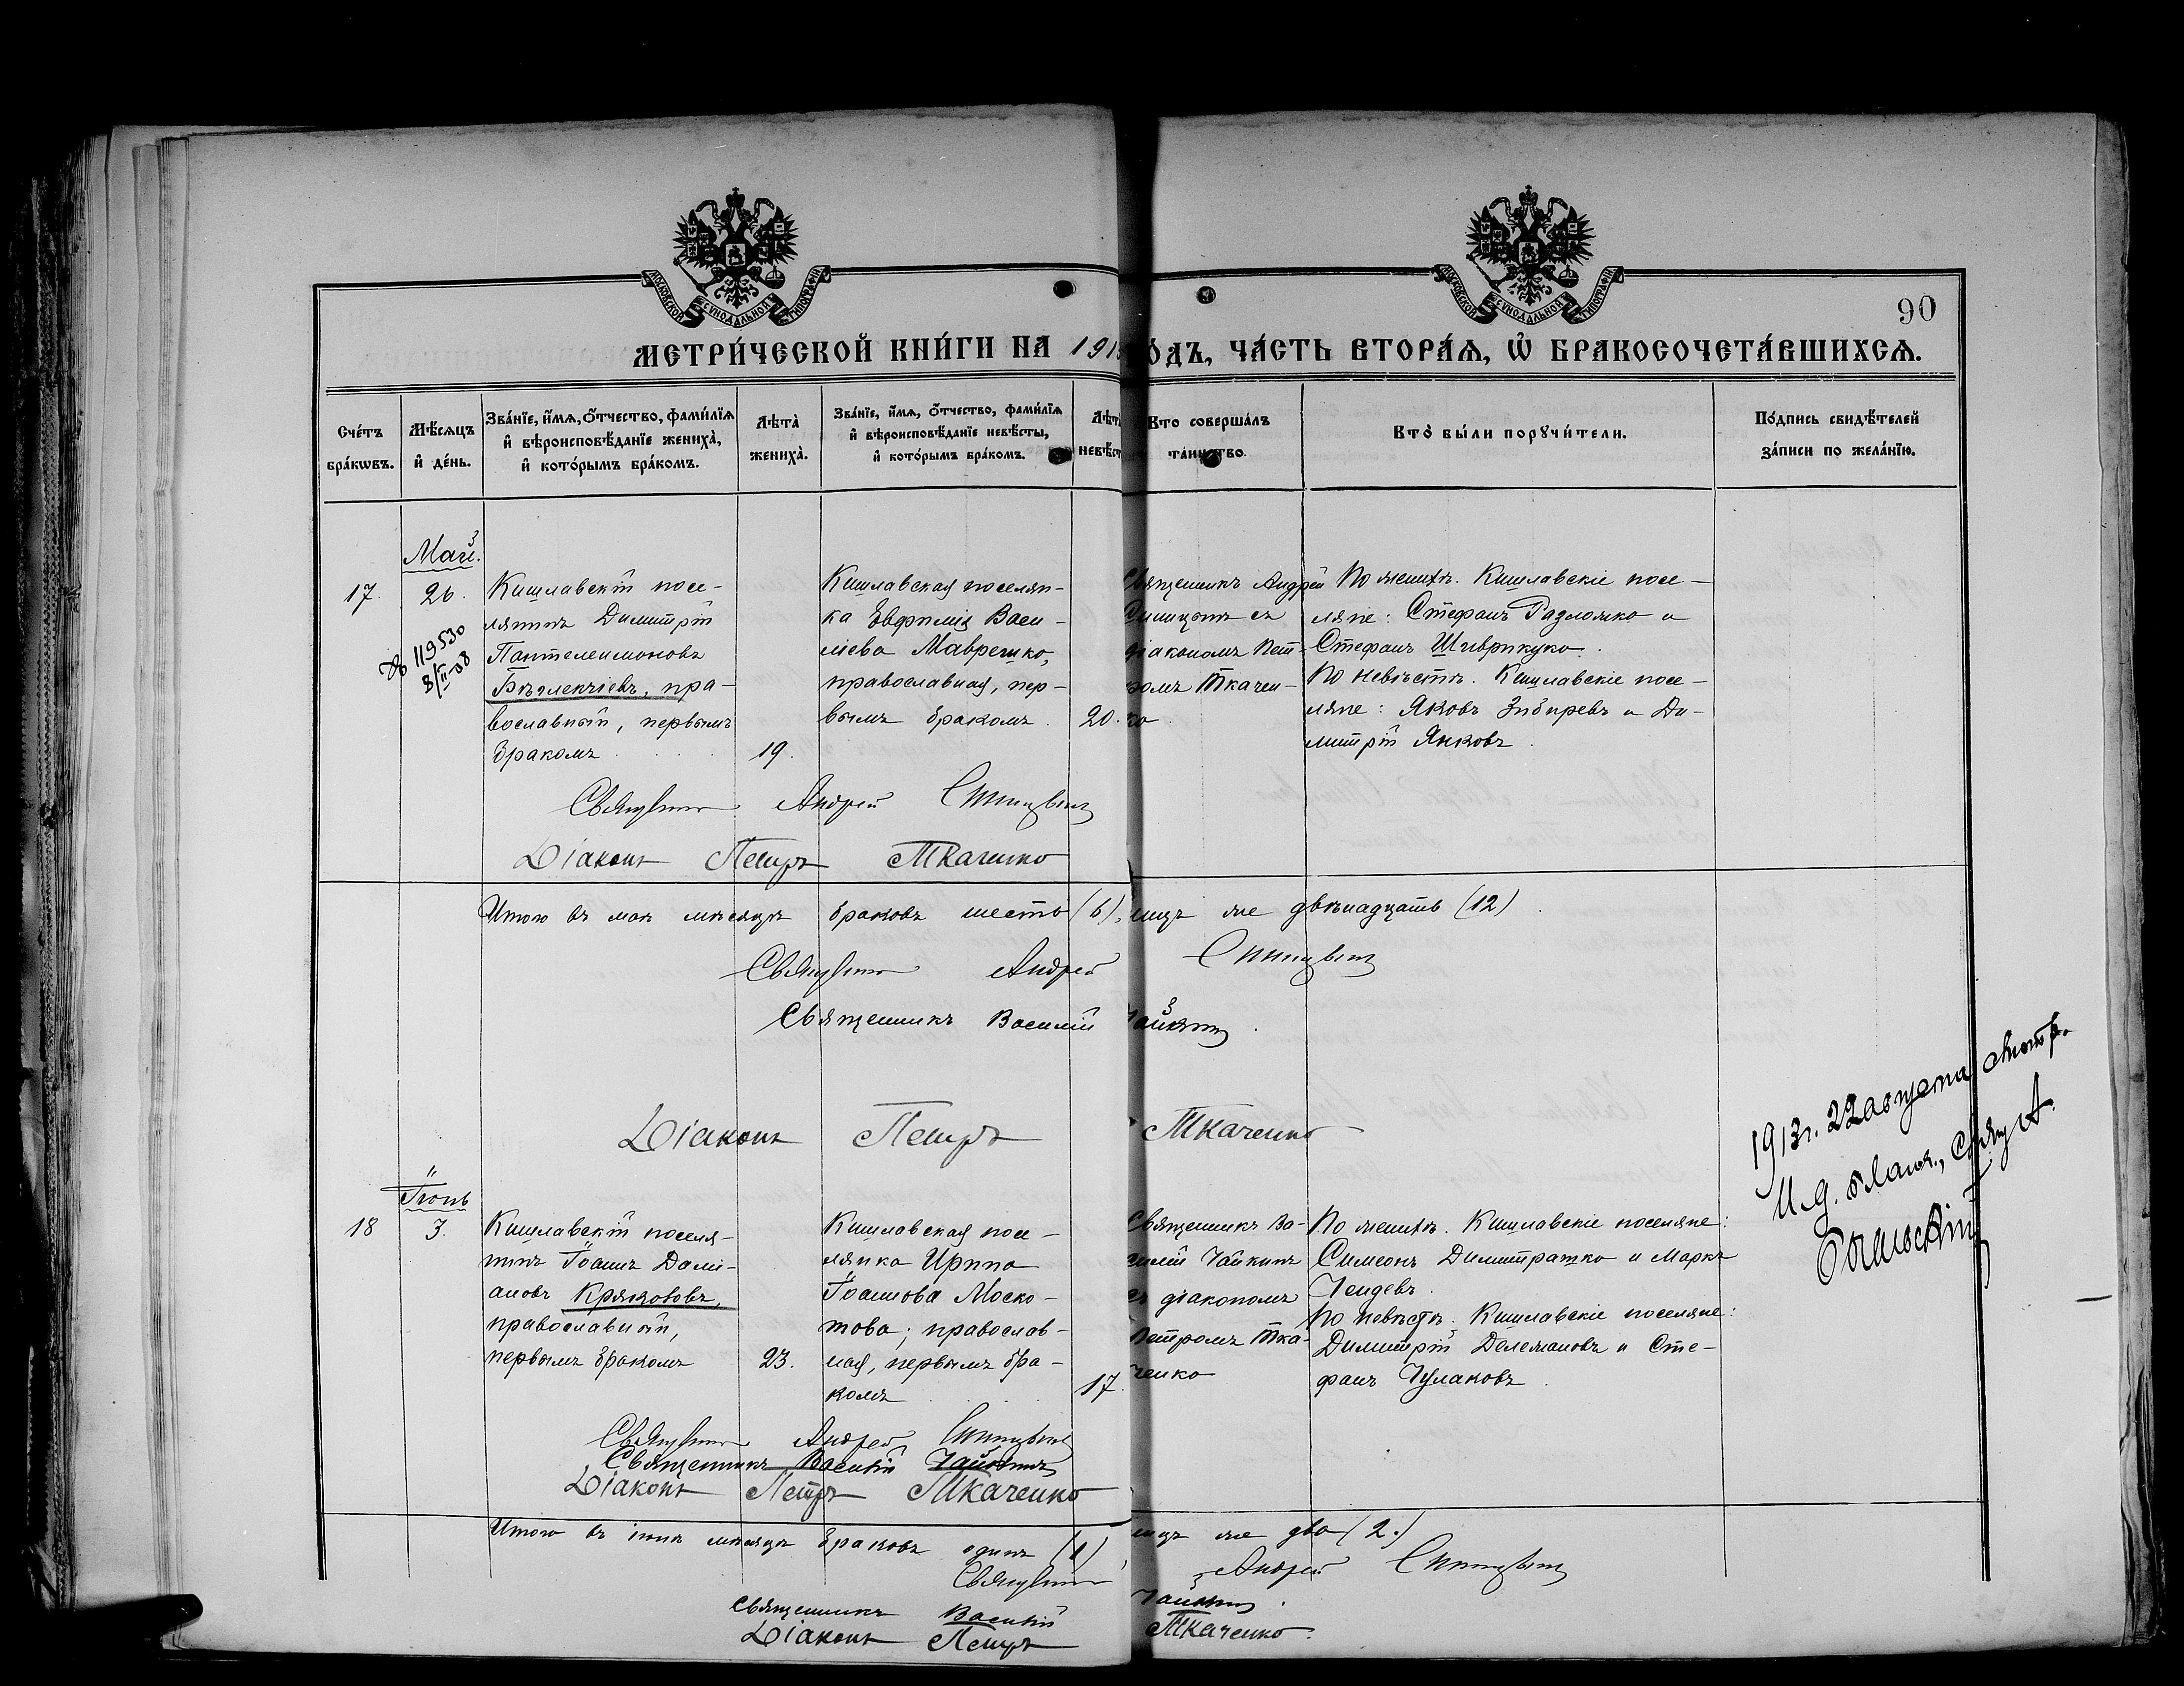 МОСКОВСКОЙ СѴНОДАЛЬНОЙ ТИПОГРАФІИ
МОСКОВСКОЙ СѴНОДАЛЬНОЙ ТИПОГРАФІИ
90
МЕТРИ́ЧЕСКОЙ КНИ́ГИ НА 191
О́ДЪ, ЧА́СТЬ ВТОРА́Я, Ѡ БРАКОСОЧЕТА́ВШИХСЯ.
Сче́тъ бра́кωвъ.
Мѣ́сяцъ и҆ де́нь.
Зва́нїе, и҆́мя, ѻ҆́тчество, фами́лїя и҆ вѣроисповѣ́данїе жениха̀, и҆ кото́рымъ бра́комъ.
Лѣта̀ жениха̀.
Зва́нїе, и҆́мя, ѻ҆́тчество, фами́лїя и҆ вѣроисповѣ́данїе невѣ́сты, и҆ кото́рымъ бра́комъ.
Лѣт невѣст
Кто соверша́лъ та́инство.
Кто̀ бы́ли порꙋчи́тели.
По́дпись свидѣ́телей за́писи по жела́нїю.
Май.
17.
26.
№ 119530
8/II-08
Кишлавскій посе-
лянинъ Димитрій
Пантелеимоновъ
пра-
вославный, первымъ
бракомъ
19.
Кишлавская поселян-
ка Евфимія Васи-
ліева Маврешко,
православная, пер-
вымъ бракомъ.
20.
Священникъ Андрей
Синицынъ съ
діакономъ Пет-
ромъ Ткачен-
ко
По женихѣ. Кишлавскіе посе-
ляне: Стефанъ Разложко и
Стефанъ Шиврикуко.
По невѣстѣ. Кишлавскіе посе-
ляне: Яковъ Зибиревъ и Ди-
митрій Янковъ.
Священникъ Андрей Синицынъ
Діаконъ Петръ Ткаченко
Итого въ маѣ мѣсяцѣ браковъ шесть (6), лицъ же двѣнадцать (12)
Священникъ Андрей Синицынъ
Священникъ Василій Чайкинъ.
Діаконъ Петръ Ткаченко
1913г. 22 августа
И.д. благ., Свящ А.
Іюнь
18
3.
Кишлавскій поселя-
нинъ Іоаннъ Дамі-
ановъ
православный,
первымъ бракомъ
23.
Кишлавская посе-
лянка Ирина
Іоаннова Моско-
това; православ-
ная, первымъ бра-
комъ
17.
Священникъ Ва-
силій Чайкинъ
съ діакономъ
Петромъ Тка-
ченко
По женихѣ. Кишлавскіе поселяне:
Симеонъ Димитрашко и Маркъ
Чендевъ.
По невѣстѣ. Кишлавскіе поселяне:
Димитрій Дележановъ и Сте-
фанъ Чулаковъ.
Священникъ Андрей Синицынъ
Священникъ Василій Чайкинъ
Діаконъ Петръ Ткаченко
Итого въ іюнѣ мѣсяцѣ браковъ одинъ (1), лицъ же два (2.)
Священникъ Андрей Синицынъ
Священникъ Василій Чайкинъ.
Діаконъ Петръ Ткаченко.